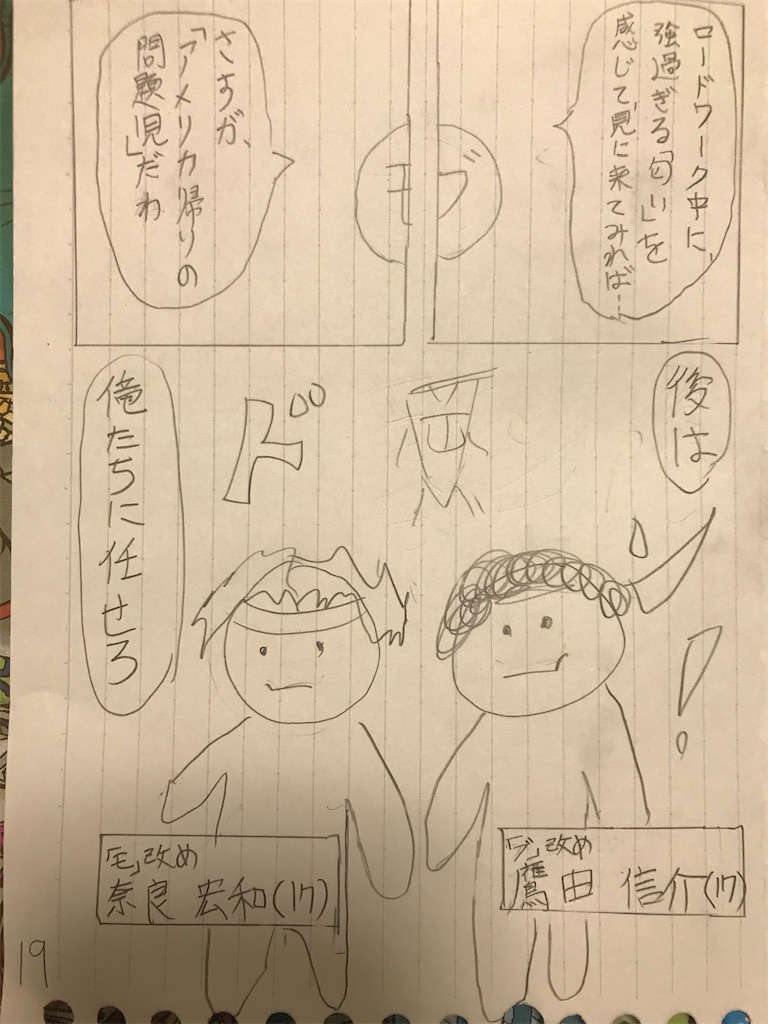 ロードワーク中に、
強過ぎる「匂い」を
感じて、見に来てみれば…
ブ
モ
さすが、
「アメリカ帰りの
問題児」だわ
後は
ド
俺たちに任せろ
「ブ」改め
鷹田 信介(17)
「モ」改め
奈良 宏和(17)
19